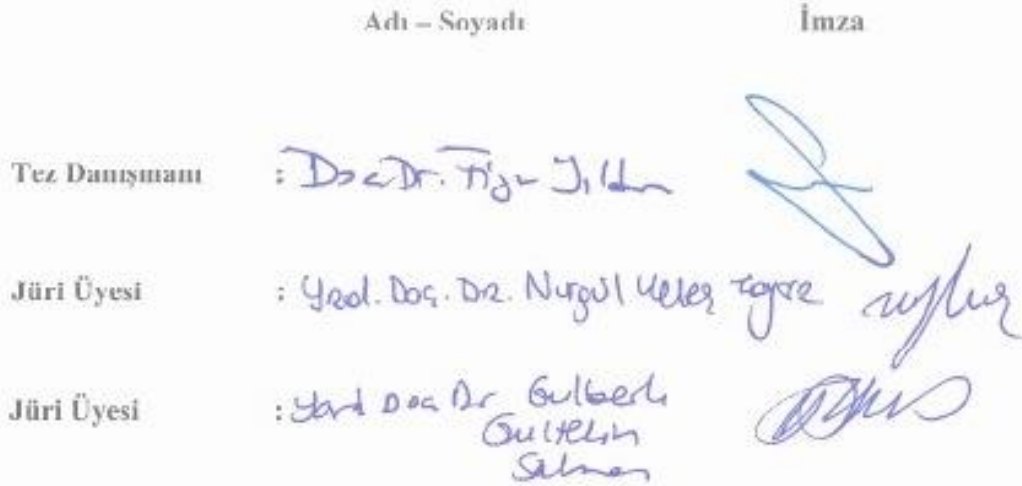 Adı – Soyadı İmza
Tez Danışmanı : Doç Dr. Figen Yıldırım
Jüri Üyesi : Yrd. Doç. Dr. Nurgül Keleş
Jüri Üyesi : Yard Doç Dr Gülberk
Gültekin
Salman